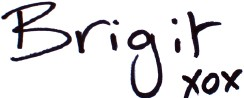 Brigit
xox